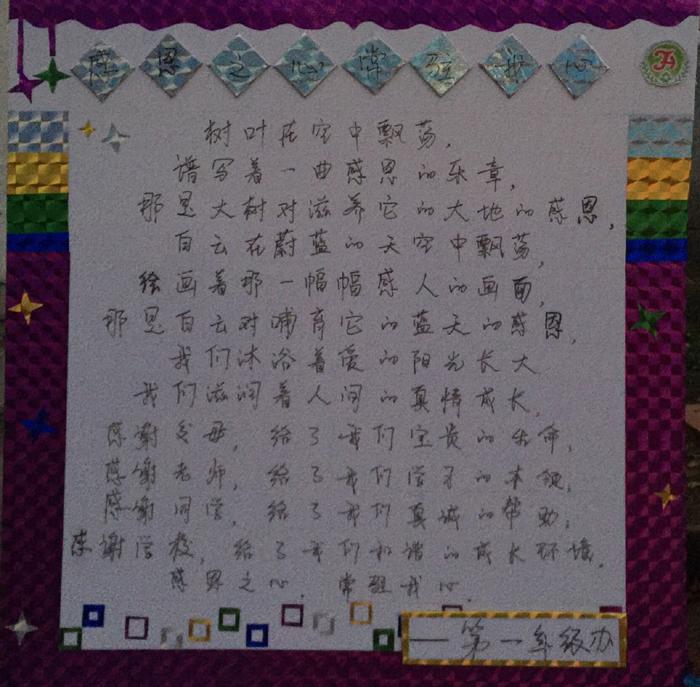 感恩之心常驻我心
树叶在空中飘荡,
谱写着一曲感恩的乐章,
那是大树对滋养它的大地的感恩,
白云在蔚蓝的天空中飘荡,
绘画着那一幅幅感人的画面,
那是白云对哺育它的蓝天的感恩,
我们沐浴着爱的阳光长大
我们滋润着人间的真情成长,
感谢父母,给了我们宝贵的生命,
感谢老师,给了我们学习的本领,
感谢同学,给了我们真诚的帮助,
感谢学校,给了我们和谐的成长环境,
感恩之心,常驻我心.
——第一年级办